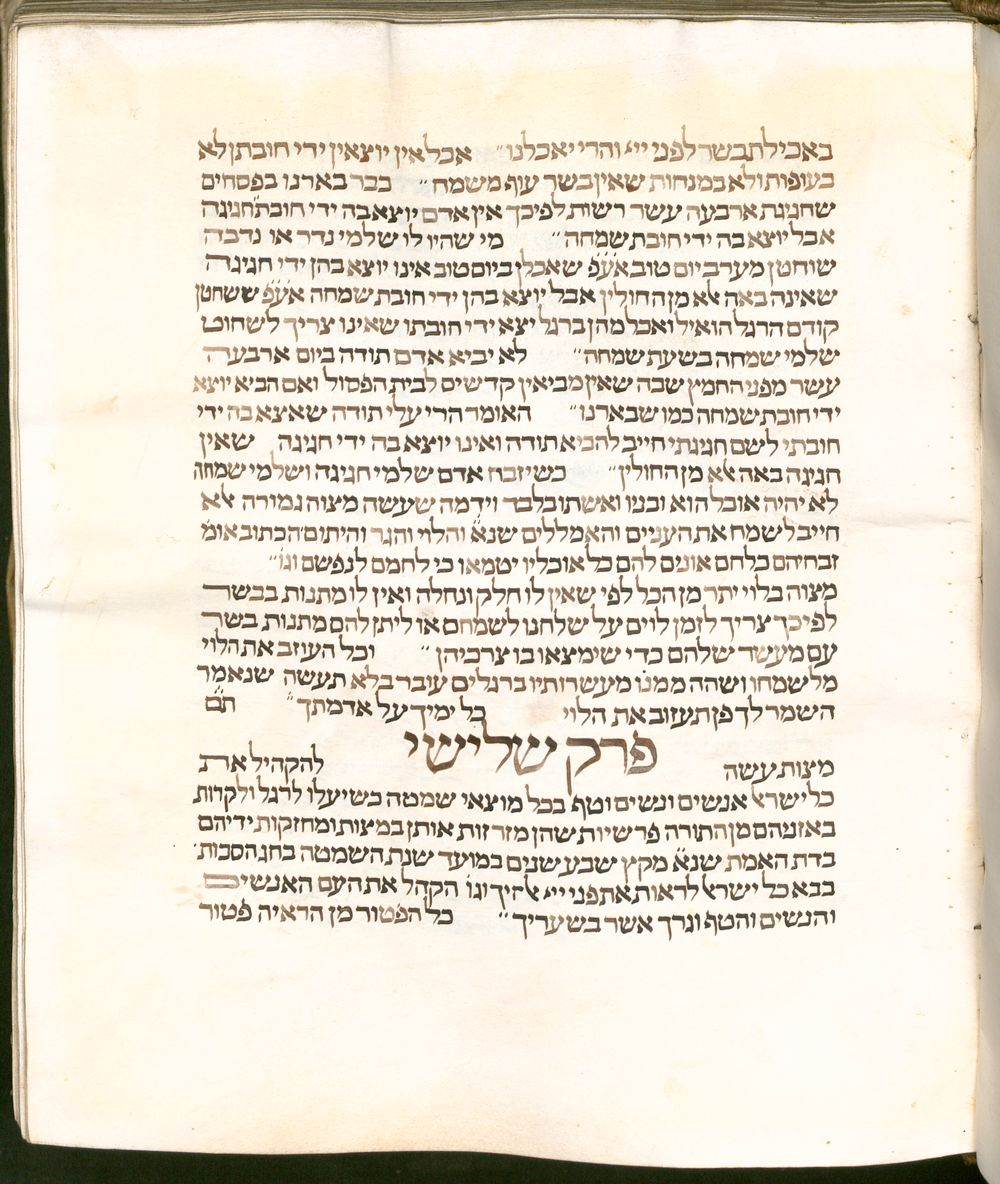 באכילת בשר לפני ייי והרי יאכלנו״ אבל אין יוצאין ידי חובתן לא
בעופות ולא במנחות שאין בשר עוף משמח״ כבר בארנו בפסחים
שחגיגת ארבעה עשר רשות לפיכך אין אדם יוצא בה ידי חובת חגיגה
אבל יוצא בה ידי חובת שמחה״ מי שהיו לו שלמי נדר או נדבה
שוחטן מערב יום טוב אע״פ שאכלן ביום טוב אינו יוצא בהן ידי חגיגה
שאינה באה אלא מן החולין אבל יוצא בהן ידי חובת שמחה אע״פ ששחטן
קודם הרגל הואיל ואכל מהן ברגל יצא ידי חובתו שאינו צריך לשחוט
שלמי שמחה בשעת שמחה״ לא יביא אדם תודה ביום ארבעה
עשר מפני החמץ שבה שאין מביאין קדשים לבית הפסול ואם הביא יוצא
ידי חובת שמחה כמו שבארנו״ האומר הרי עלי תודה שאצא בה ידי
חובתי לשם חגיגתי חייב להביא תודה ואינו יוצא בה ידי חגיגה שאין
חגיגה באה אלא מן החולין״ כשיזבח אדם שלמי חגיגה ושלמי שמחה
לא יהיה אוכל הוא ובניו ואשתו בלבד וידמה שעשה מצוה גמורה אלא
חייב לשמח את העניים והאמללים שנא׳ והלוי והגר והיתום הכתוב אומ׳
זבחיהם כלחם אונים להם כל אוכליו יטמאו כי לחמם לנפשם וגו׳״
מצוה בלוי יתר מן הכל לפי שאין לו חלק ונחלה ואין לו מתנות בבשר
לפיכך צריך לזמן לוים על שלחנו לשמחם או ליתן להם מתנות בשר
עם מעשר שלהם כדי שימצאו בו צרכיהן״ וכל העוזב את הלוי
מלשמחו ושהה ממנו מעשרותיו ברגלים עובר בלא תעשה שנאמר
השמר לך פן תעזוב את הלוי כל ימיך על אדמתך״ תם
פרק שלישי
מצות עשה להקהיל את
כל ישראל אנשים ונשים וטף בכל מוצאי שמטה בשיעלו לרגל ולקרות
באזניהם מן התורה פרשיות שהן מזרזות אותן במצות ומחזקות ידיהם
בדת האמת שנא׳ מקץ שבע שנים במועד שנת השמטה בחג הסכות׳
בבא כל ישראל לראות את פני ייי אלהיך וגו׳ הקהל את העם האנשים
והנשים והטף וגרך אשר בשעריך״ כל הפטור מן הראיה פטור